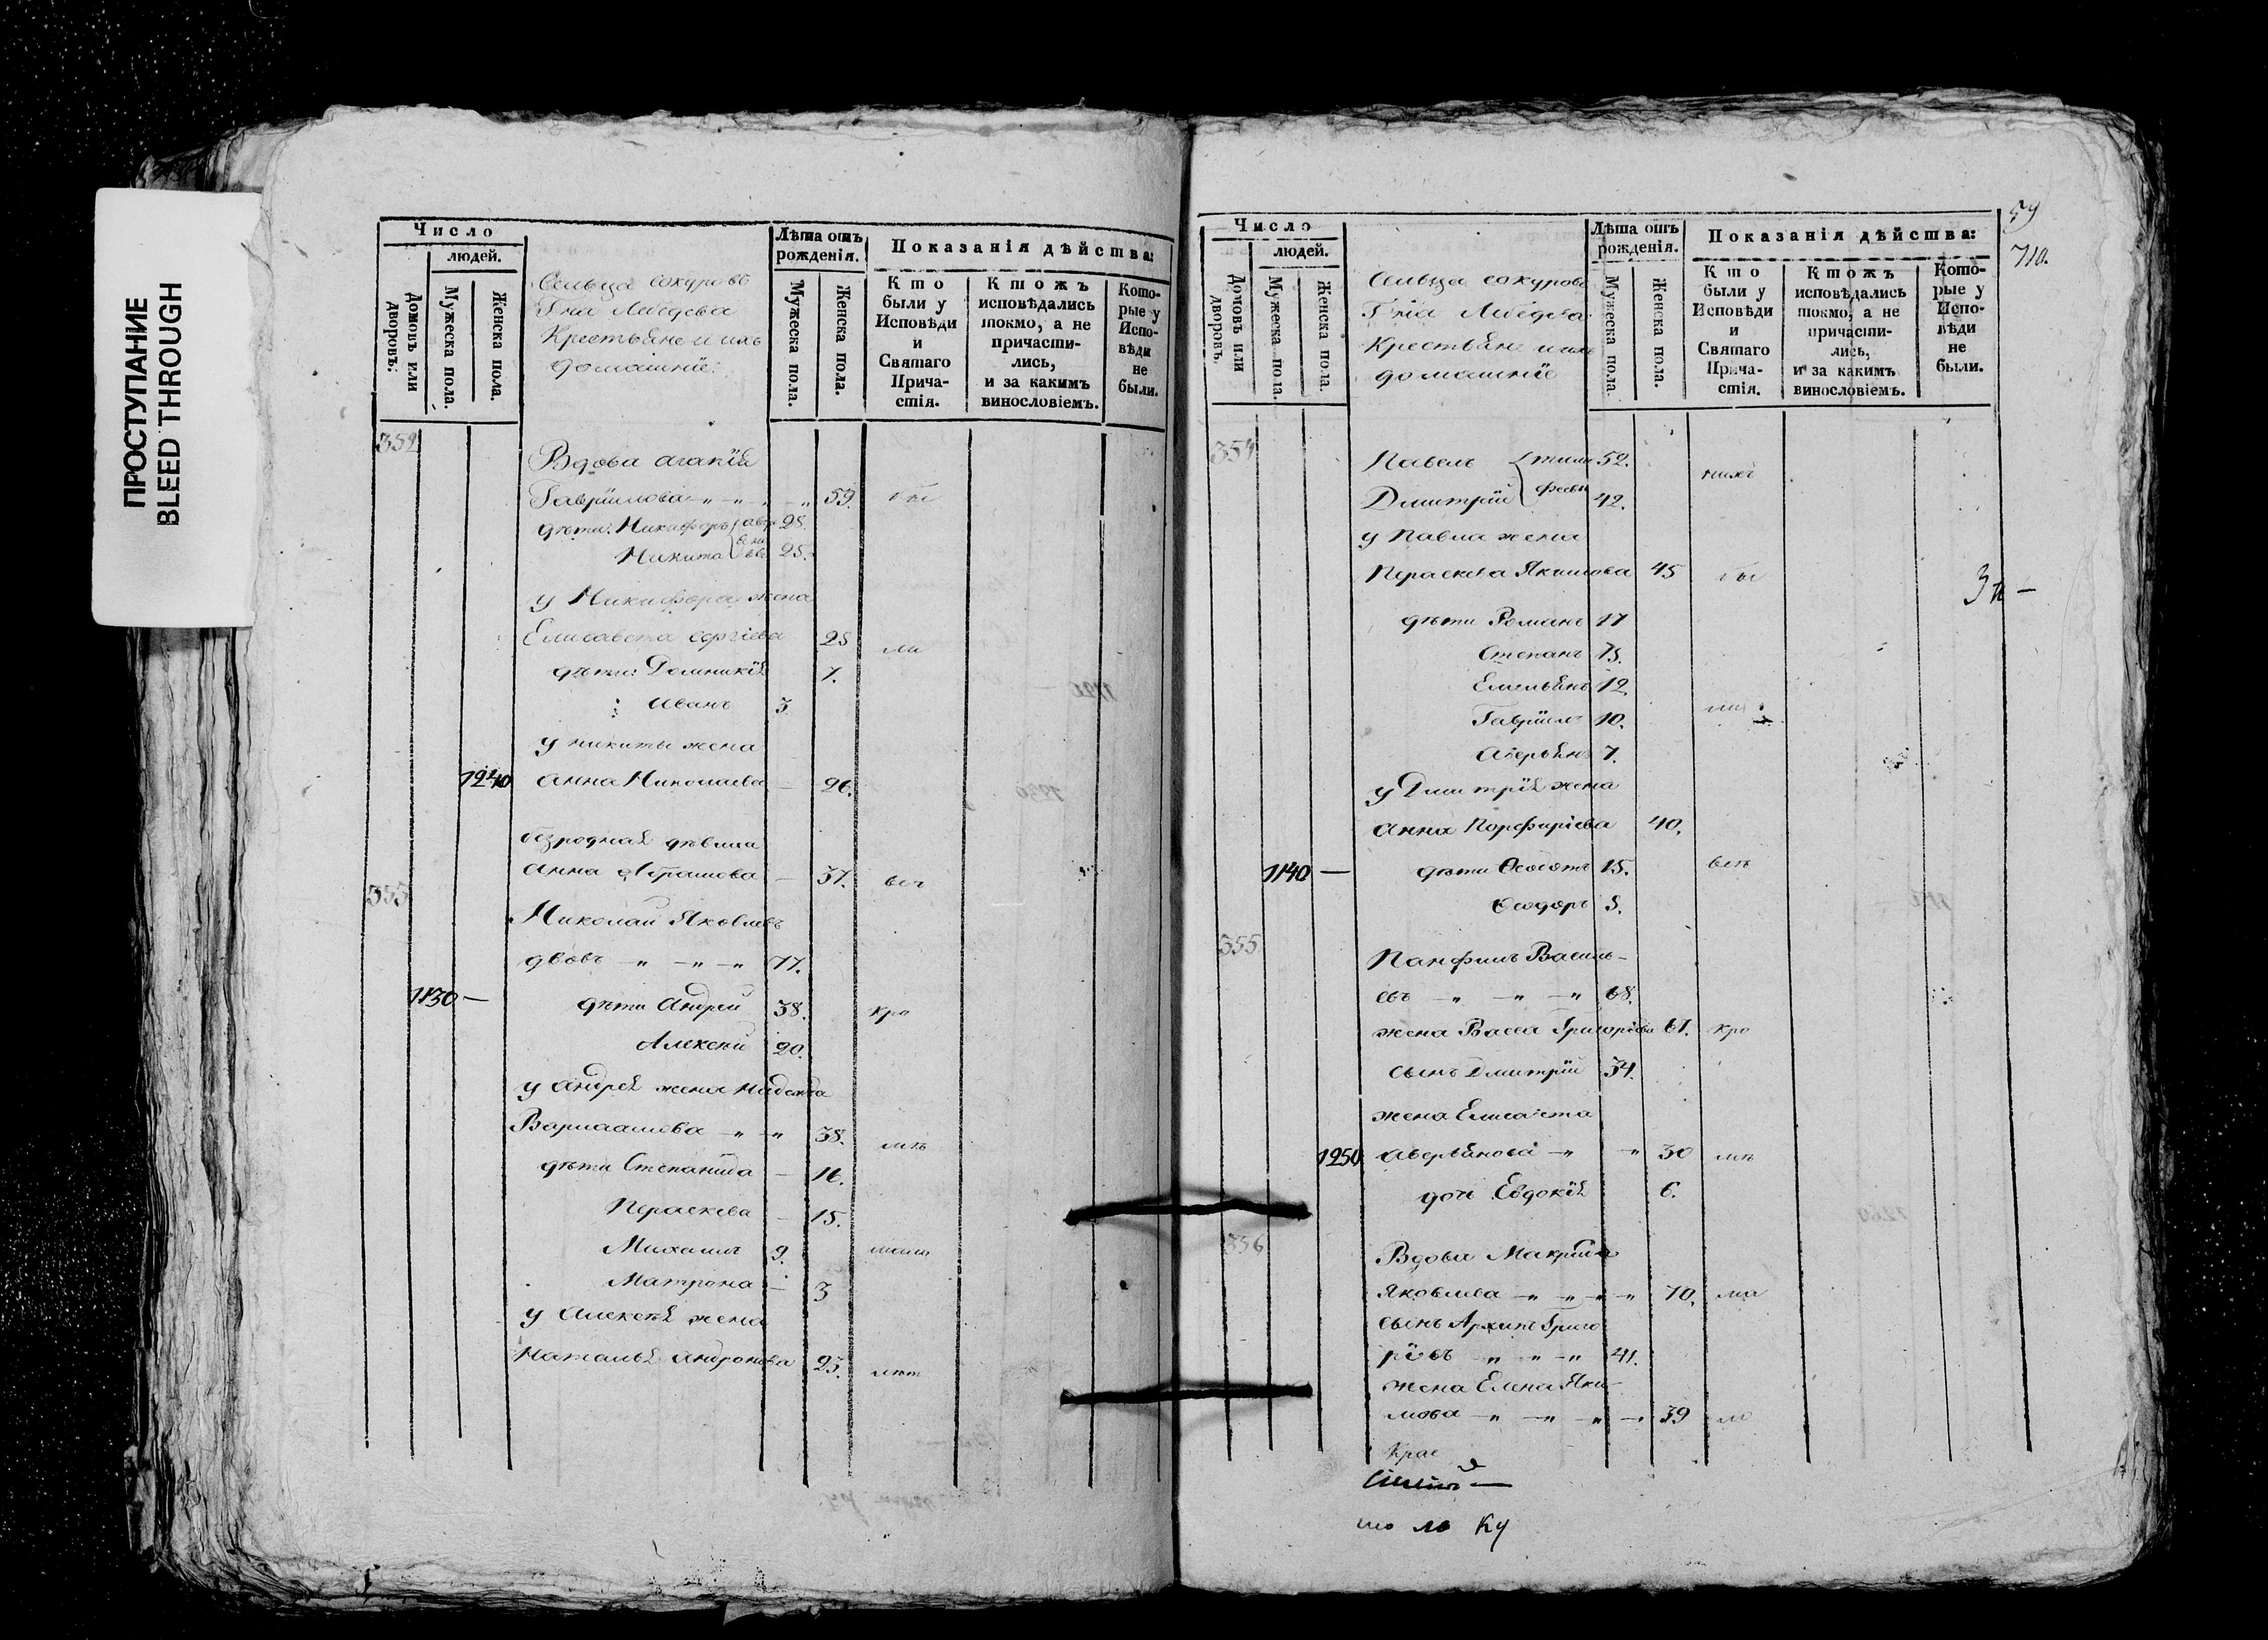 ПРОСТУПАНИЕ
BLEED THROUGH
Число
людей.
Домовъ или дворовъ.
Мужеска пола.
Женска пола.
Сельца сокурова
Гна Лебедева
Крестьяне и ихъ
домашнїе:
Лѣта отъ рожденія.
Мужеска пола.
Женска пола.
Показанія дѣйства:
Кто были у Исповѣди и Святаго Прича-стія.
Ктожъ исповѣдались токмо, а не причасти-лись, и за какимъ винословіемъ.
Кото-рые у Испо-вѣди не были.
352
Вдова агапїя
Гаврїилова - " - " - " 59. бы
дѣти: Никифоръ 28.
Никита 25.
у Никифора жена
Елисавета сергїева 28 ли
дѣти: Домникїя 7.
Иванъ 3
у никиты жена
1240 анна Николаева - 26.
безродная дѣвица
анна - 37. всѣ
353
Николай Яковлевъ
двовъ - " - " - " 77.
1130 - дѣти андрей 38. кро
Алексѣй 20.
у андрея жена надежда
Варлаамова - " - " 38. мѣ
дѣти Степанида - 16.
Параскева - 15.
Михаилъ 9.
Матрона - 3
у алексѣя жена
Наталья андронова 23. лѣт
59
710.
Число
людей.
Домовъ или дворовъ.
Мужеска пола.
Женска пола.
Сельца сокурова
Гна Лебедева
Крестьяне и ихъ
домашнїе
Лѣта отъ рожденія.
Мужеска пола.
Женска пола.
Показанія дѣйства:
Кто были у Исповѣди и Святаго Прича-стія.
Ктожъ исповѣдались токмо, а не причасти-лись, и за какимъ винословіемъ.
Кото-рые у Испо-вѣди не были.
354
Павелъ 52.
Дмитрїй 42.
у Павла жена
Параскева Якимова 45 бы
дѣти Романъ 17
Степанъ 15.
Емельянъ 12
Гаврїилъ 10. ли
аверьянъ 7.
у Дмитрїя жена
анна Порфирїева 40.
1140 - дѣти Ѳедотъ 15. всѣ
Ѳеодоръ 5.
355
Панфилъ Василь-
евъ - " - " - " 68.
жена Васса Григорїева 67. кро
сынъ Дмитрїй 34.
жена Елисавета
1250 аверьянова - " - " 30 мѣ
дочь Евдокїя 6.
356
Вдова Макрина
Яковлева - " - " - " 70. ма
сынъ Архипъ Григо
рїевъ - " - " - " 41.
жена Елена Яки-
мова - " - " - " 39 ло
Крас
ло Ку